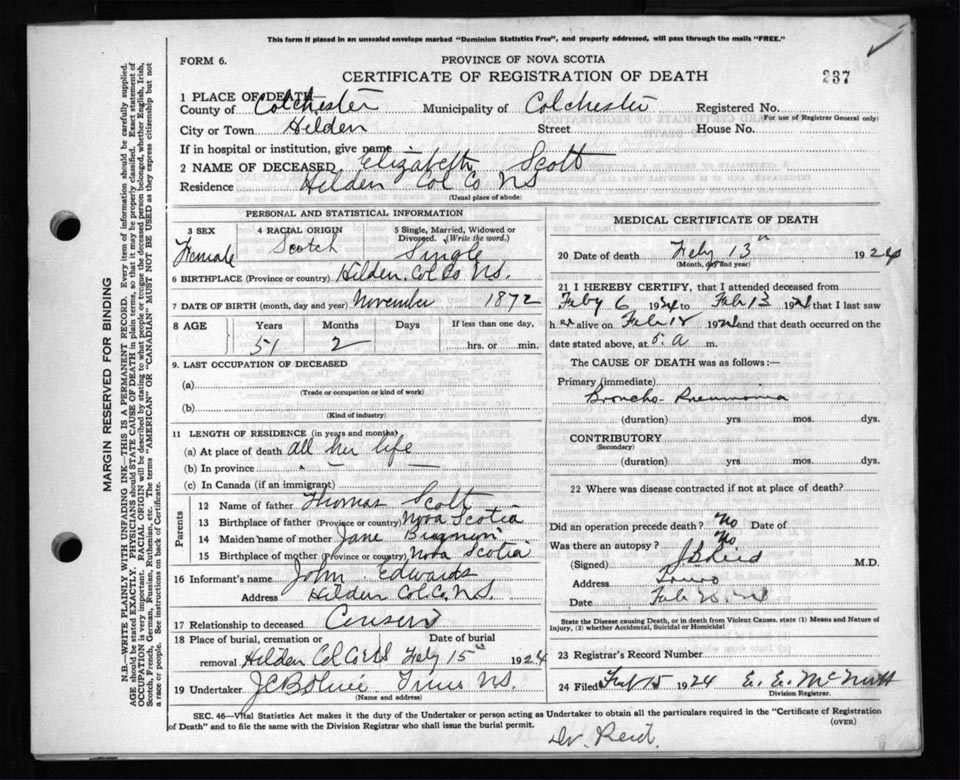 This form if placed in an unsealed envelope marked "Dominion Statistics Free", and properly addressed, will pass through the mails "FREE."
FORM 6.
PROVINCE OF NOVA SCOTIA
CERTIFICATE OF REGISTRATION OF DEATH
237
1 PLACE OF DEATH—
County of Colchester Municipality of Colchester Registered No.
(For use of Registrar General only)
City or Town Hilden Street House No.
If in hospital or institution, give name
2 NAME OF DECEASED Elizabeth Scott
Residence Hilden Col Co NS
(Usual place of abode)
PERSONAL AND STATISTICAL INFORMATION
3 SEX 4 RACIAL ORIGIN 5 Single, Married, Widowed or Divorced. (Write the word.)
Female Scotch Single
6 BIRTHPLACE (Province or country) Hilden Col Co NS.
7 DATE OF BIRTH (month, day and year) November 1872
8 AGE Years Months Days If less than one day,
51 2 hrs. or min.
9. LAST OCCUPATION OF DECEASED
(a)
(Trade or occupation or kind of work)
(b)
(Kind of industry)
11 LENGTH OF RESIDENCE (in years and months)
(a) At place of death all her life
(b) In province
(c) In Canada (if an immigrant)
Parents
12 Name of father Thomas Scott
13 Birthplace of father (Province or country) Nova Scotia
14 Maiden name of mother Jane
15 Birthplace of mother (Province or country) Nova Scotia
16 Informant's name John Edwards
Address Hilden Col Co. NS.
17 Relationship to deceased
18 Place of burial, cremation or removal Date of burial
Hilden Col Co NS Feby 15th 1924
19 Undertaker NS.
(Name and address)
MEDICAL CERTIFICATE OF DEATH
20 Date of death Feby 13th 1924
(Month, day and year)
21 I HEREBY CERTIFY, that I attended deceased from
Feby 6 1924 to Feb 13 192 that I last saw
her alive on Feb 192 and that death occurred on the
date stated above, at a m.
The CAUSE OF DEATH was as follows:—
Primary (immediate)
Broncho-Pneumonia
(duration) yrs mos. dys.
CONTRIBUTORY
(Secondary)
(duration) yrs mos. dys.
22 Where was disease contracted if not at place of death?
Did an operation precede death? No Date of
Was there an autopsy? No
(Signed) Reid M.D.
Address Truro
Date Feb
State the Disease causing Death, or in death from Violent Causes. state (1) Means and Nature of Injury, (2) whether Accidental, Suicidal or Homicidal
23 Registrar's Record Number
24 Filed Feb 15 1924 E. E. McNutt
Division Registrar.
SEC. 46—Vital Statistics Act makes it the duty of the Undertaker or person acting as Undertaker to obtain all the particulars required in the "Certificate of Registration of Death" and to file the same with the Division Registrar who shall issue the burial permit.
(OVER)
Dr. Reid.
MARGIN RESERVED FOR BINDING
N.B.—WRITE PLAINLY WITH UNFADING INK—THIS IS A PERMANENT RECORD. Every item of information should be carefully supplied.
AGE should be stated EXACTLY. PHYSICIANS should STATE CAUSE OF DEATH in plain terms, so that it may be properly classified. Exact statement of
OCCUPATION is very important. RACIAL ORIGIN will be described by stating to what people or tongue the deceased person belonged, whether English, Irish,
Scotch, French, German, Russian, Ruthenian, etc. The terms "AMERICAN" or "CANADIAN" MUST NOT BE USED as they express citizenship but not
a race or people. See instructions on back of Certificate.